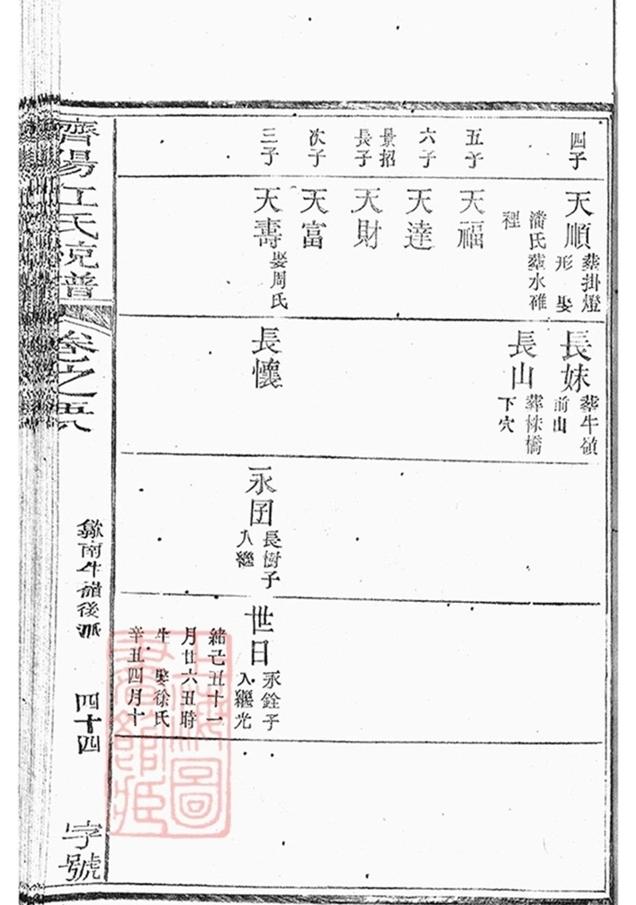 四子
天順
葬掛燈
形 娶
潘氏葬水碓
裡
長妹
葬牛嶺
前山
長山
葬株橋
下穴
五子
天福
六子
天達
景招
長子
天財
次子
天富
三子
天壽
娶周氏
長懷
永
長樹子
入繼
世日
永銓子
入繼光
緒己丑十一
月廿六丑時
生 娶徐氏
辛丑四月十
濟陽江氏統譜
卷之
歙南牛嶺後派
四十四
字號
上海圖
書館藏